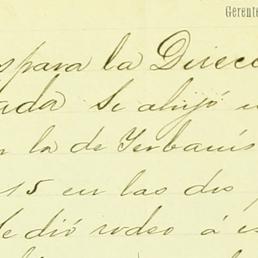 Gerente
s para la Direcc
ada Se alijó u
n la de Yerbanís
15 en las dos
e dió rodeo á es